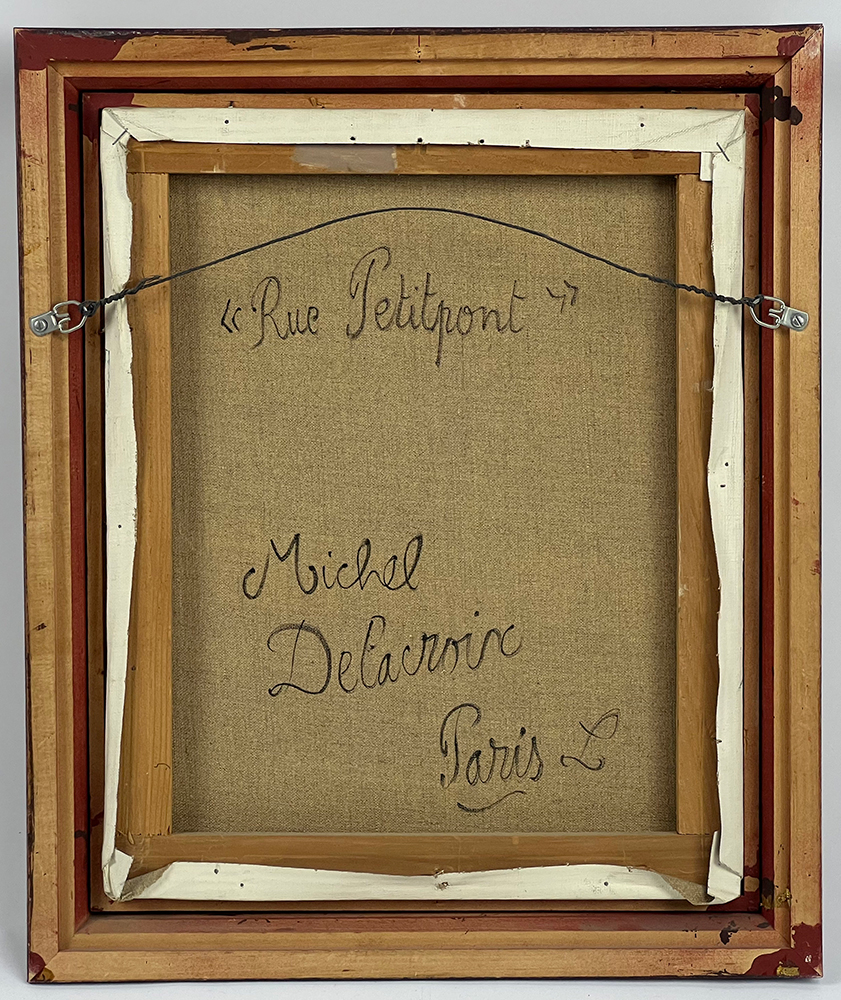 « Rue Petitpont »
Michel
Delacroix
Paris L